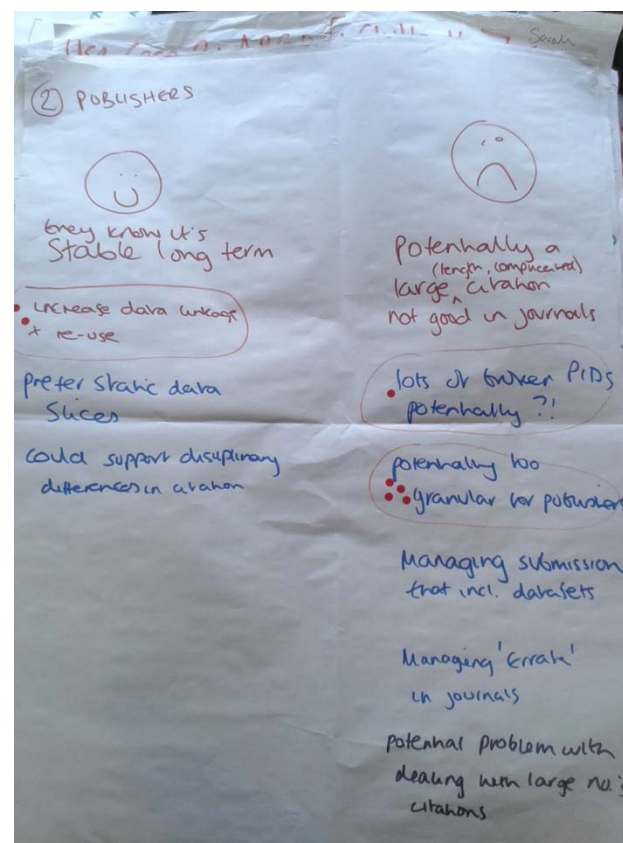 Sarah
② PUBLISHERS
they know it's
Stable long term
increase data linkage
+ re-use
prefer static data
Slices
could support disciplinary
differences in citation
Potentially a
(length, complicated)
large ^ citation
not good in journals
lots of broken PIDS
potentially ?!
potentially too
granular for publishers
Managing submission
that incl. datasets
Managing 'Errata'
in journals
potential problem with
dealing with large no.'s
citations